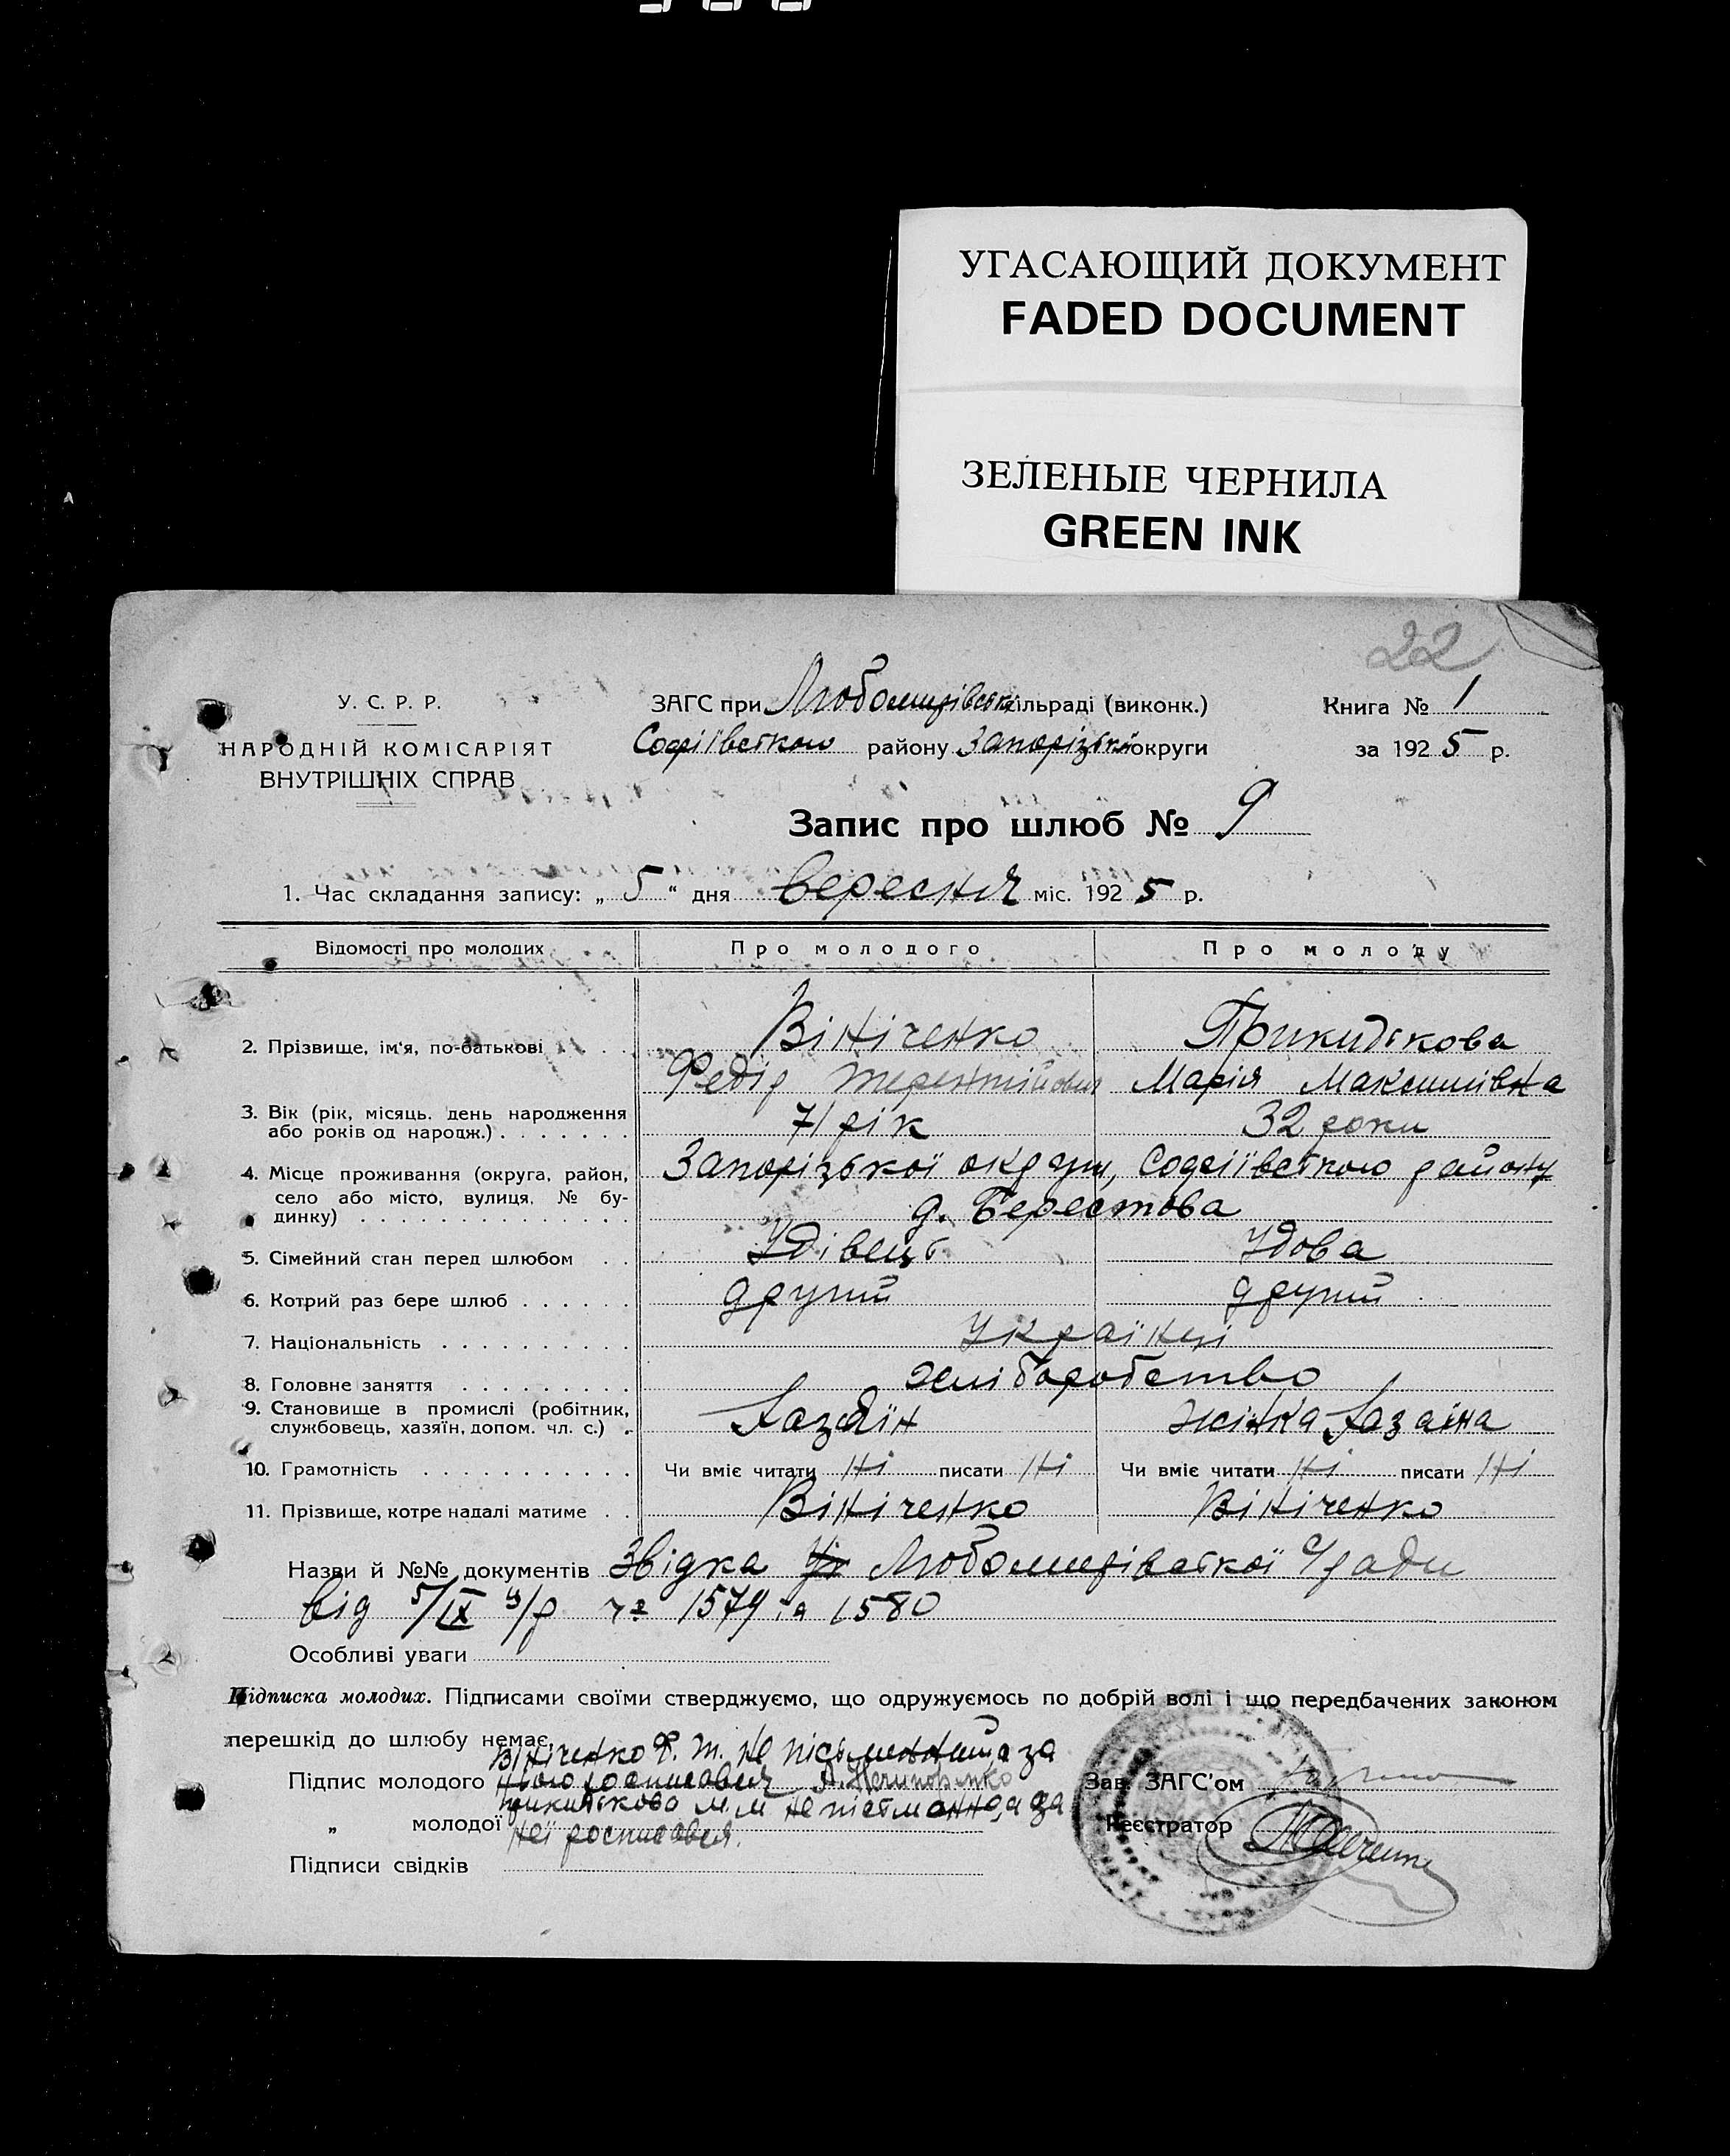 УГАСАЮЩИЙ ДОКУМЕНТ
FADED DOCUMENT
ЗЕЛЕНЫЕ ЧЕРНИЛА
GREEN INK
22
У. С. Р. Р.
НАРОДНІЙ КОМІСАРІЯТ
ВНУТРІШНІХ СПРАВ
ЗАГС при Любомирівськ сільраді (виконк.)
Софіївського району Запорізької округи
Книга № 1
за 1925 р.
Запис про шлюб № 9
1. Час складання запису: „ 5 “ дня вересня міс. 1925 р.
Відомості про молодих Про молодого Про молоду
2. Прізвище, ім‘я, по-батькові Вініченко Прикидькова
Федір Терентійович Марія Максимівна
3. Вік (рік, місяць, день народження або років од народж.) 71 рік 32 роки
4. Місце проживання (округа, район, село або місто, вулиця, № будинку) Запорізької округи, Софіївського району
д. Берестова
5. Сімейний стан перед шлюбом Удівець Удова
6. Котрий раз бере шлюб другий другий
7. Національність Українці
8. Головне заняття хліборобство
9. Становище в промислі (робітник, службовець, хазяїн, допом. чл. с.) Хазяїн жінка хазаїна
10. Грамотність Чи вміє читати ні писати ні Чи вміє читати ні писати ні
11. Прізвище, котре надалі матиме Вініченко Вініченко
Назви й №№ документів Звідка Любомирівської с/ради
від 5/IX ц/р чз 1579 та 1580
Особливі уваги
Підписка молодих. Підписами своїми стверджуємо, що одружуємось по добрій волі і що передбачених законом
перешкід до шлюбу немає.
Вініченко Ф. Т. не письменний а за
Підпис молодого нього росписався
Прикидькова М. М. не письменна а за
„ молодої неї росписався.
Підписи свідків
Зав. ЗАГС'ом
Реєстратор